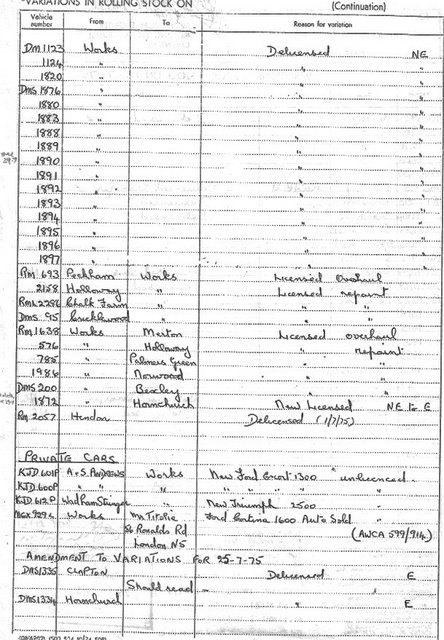 VARIATIONS IN ROLLING STOCK ON (Continuation)
Vehicle number From To Reason for variation
DM 1123 Works Delicensed NE
1124 " " "
1820 " " "
DMS 1876 " " "
1880 " " "
1883 " " "
1888 " " "
1889 " " "
1890 " " "
1891 " " "
1892 " " "
1893 " " "
1894 " " "
1895 " " "
1896 " " "
1897 " " "
RM 693 Peckham Works Licensed overhaul
2158 Holloway " Licensed repaint
RML 2286 Chalk Farm " " "
DMS 95 Cricklewood " " "
RM 1638 Works Merton Licensed overhaul
576 " Holloway " repaint
785 " Palmers Green " "
1986 " Norwood " "
DMS 200 " Bexley " "
1872 " Hornchurch New Licensed NE to E
RM 2057 Hendon Delicensed (1/7/75)
PRIVATE CARS
KJD 601P A & S. ANDREWS Works New Ford Escort 1300 unlicenced
KJD 600P " " " " " " "
KJD 612P Wadham Stringer " New Triumph 2500 "
MGX 929L Works Mr Ford Cortina 1600 Auto Sold "
36 Ronalds Rd (AWCA 599/914)
London N5
AMENDMENT TO VARIATIONS FOR 25-7-75
DMS 1335 CLAPTON Delicensed E
Should read "
DMS 1334 Hornchurch " E